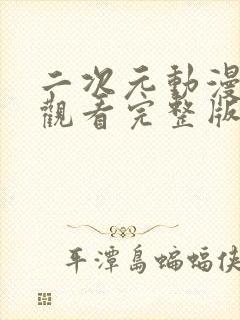 二次元動漫
觀看完整版
平潭島蝙蝠俠